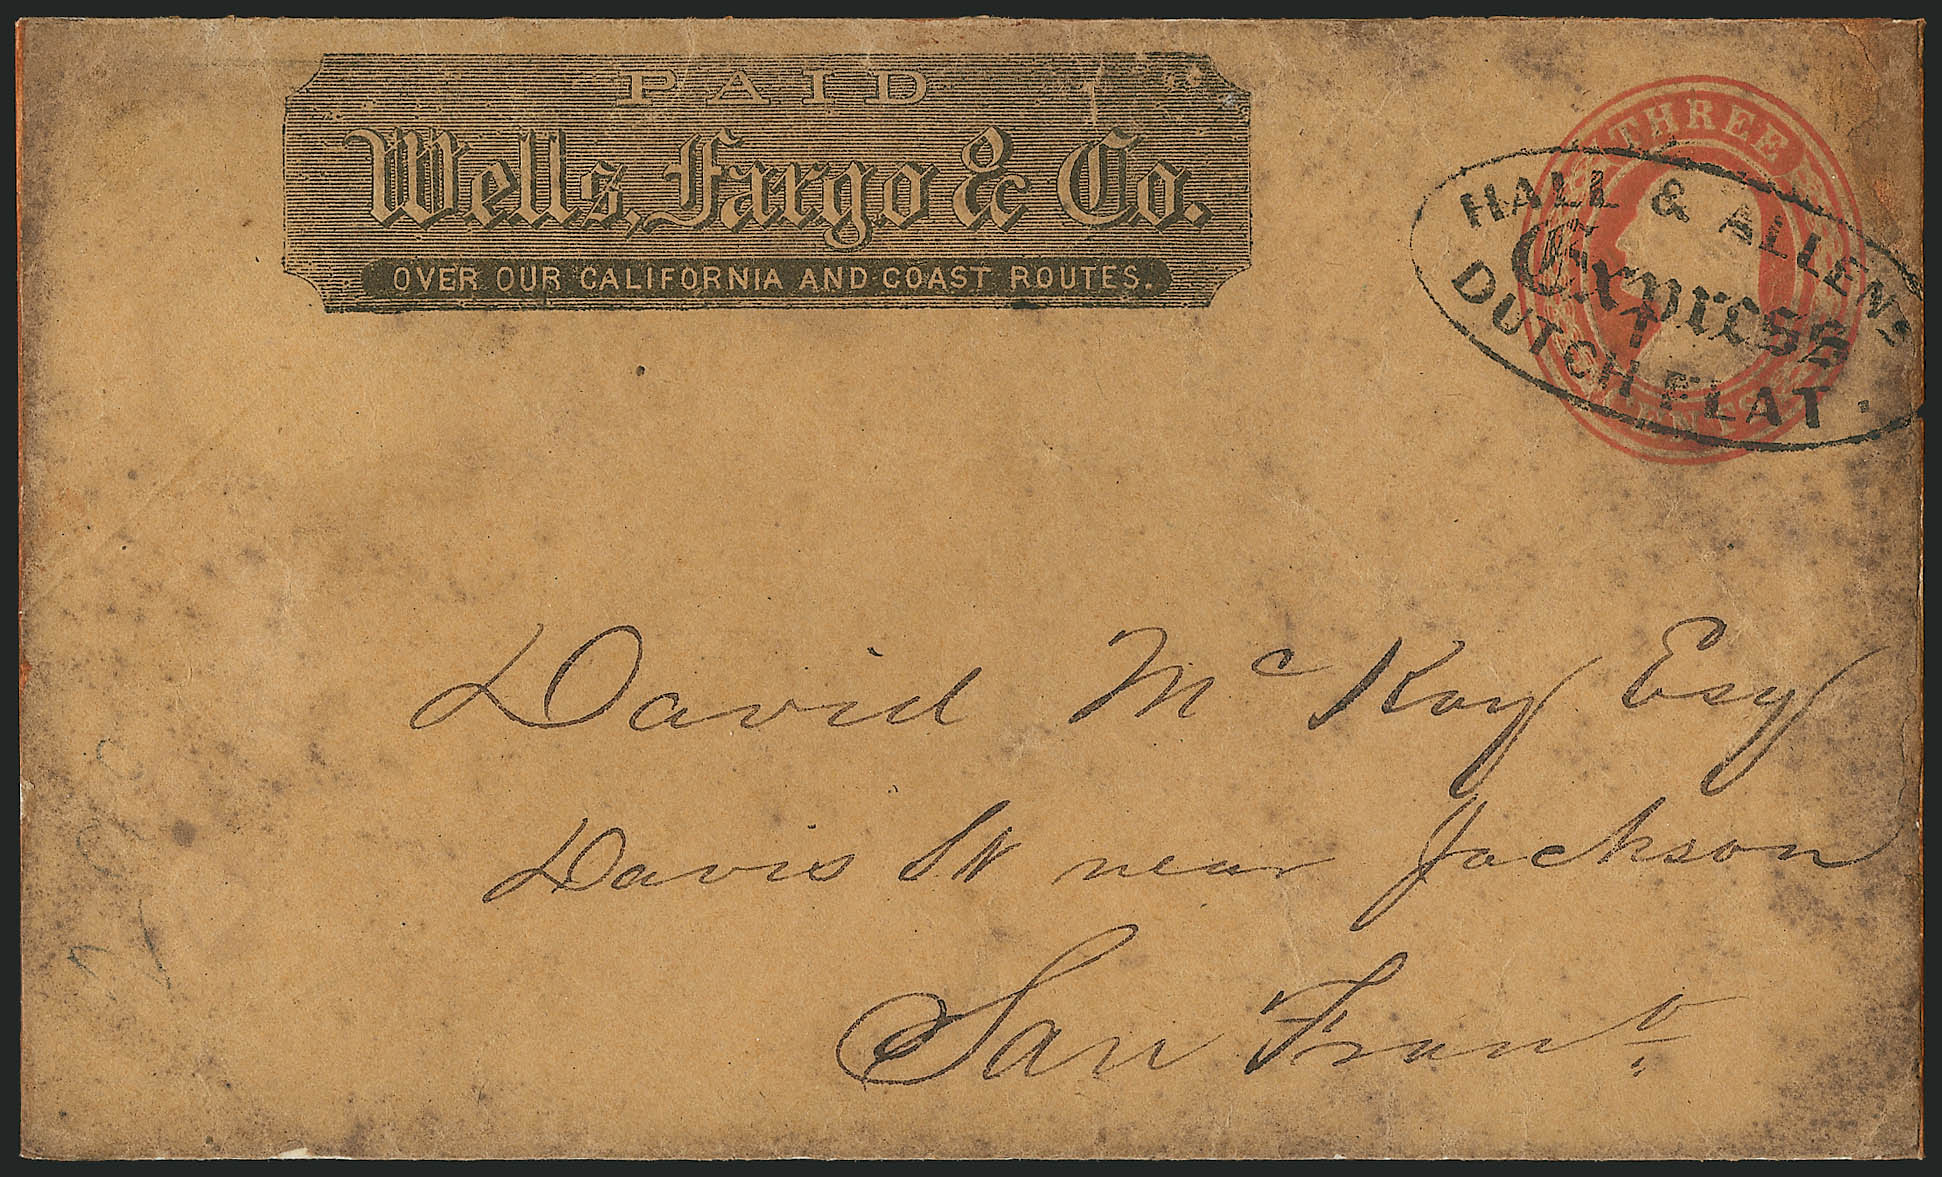 PAID
Wells, Fargo & Co.
OVER OUR CALIFORNIA AND COAST ROUTES.
THREE
CENTS
HALL & ALLENS
Express
DUTCH FLAT.
David Mc Kay Esq
Davis St near Jackson
San Franco